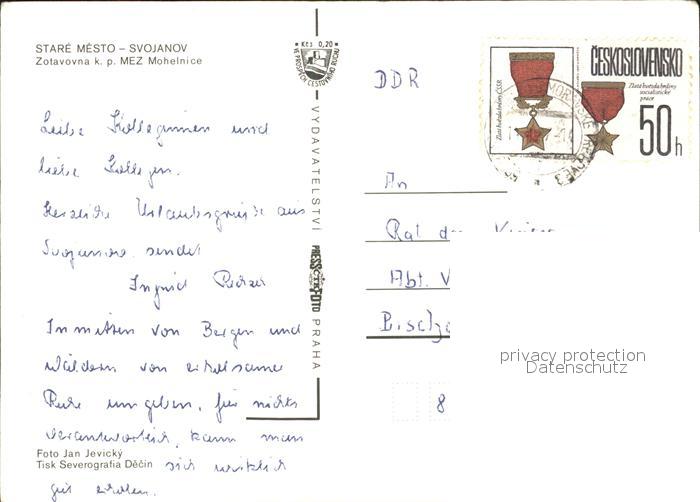 STARÉ MĚSTO – SVOJANOV
Zotavovna k. p. MEZ Mohelnice
Liebe Kolleginnen und
liebe Kollegen.
Herzliche Urlaubsgrüße aus
Svojanov sendet
Ingrid
Inmitten von Bergen und
Wäldern von erholsamer
Ruhe umgeben, für nichts
verantwortlich, kann man
sich wirklich
gut erholen.
Foto Jan Jevický
Tisk Severografia Děčín
Kčs 0,20
VE PROSPĚCH CESTOVNÍHO RUCHU
VYDAVATELSTVÍ
PRESSFOTO
PRAHA
DDR
ČESKOSLOVENSKO
Zlatá hvězda hrdiny ČSSR
Zlatá hvězda hrdiny
socialistické
práce
50 h
An
Rat
Abt. V
8
privacy protection
Datenschutz